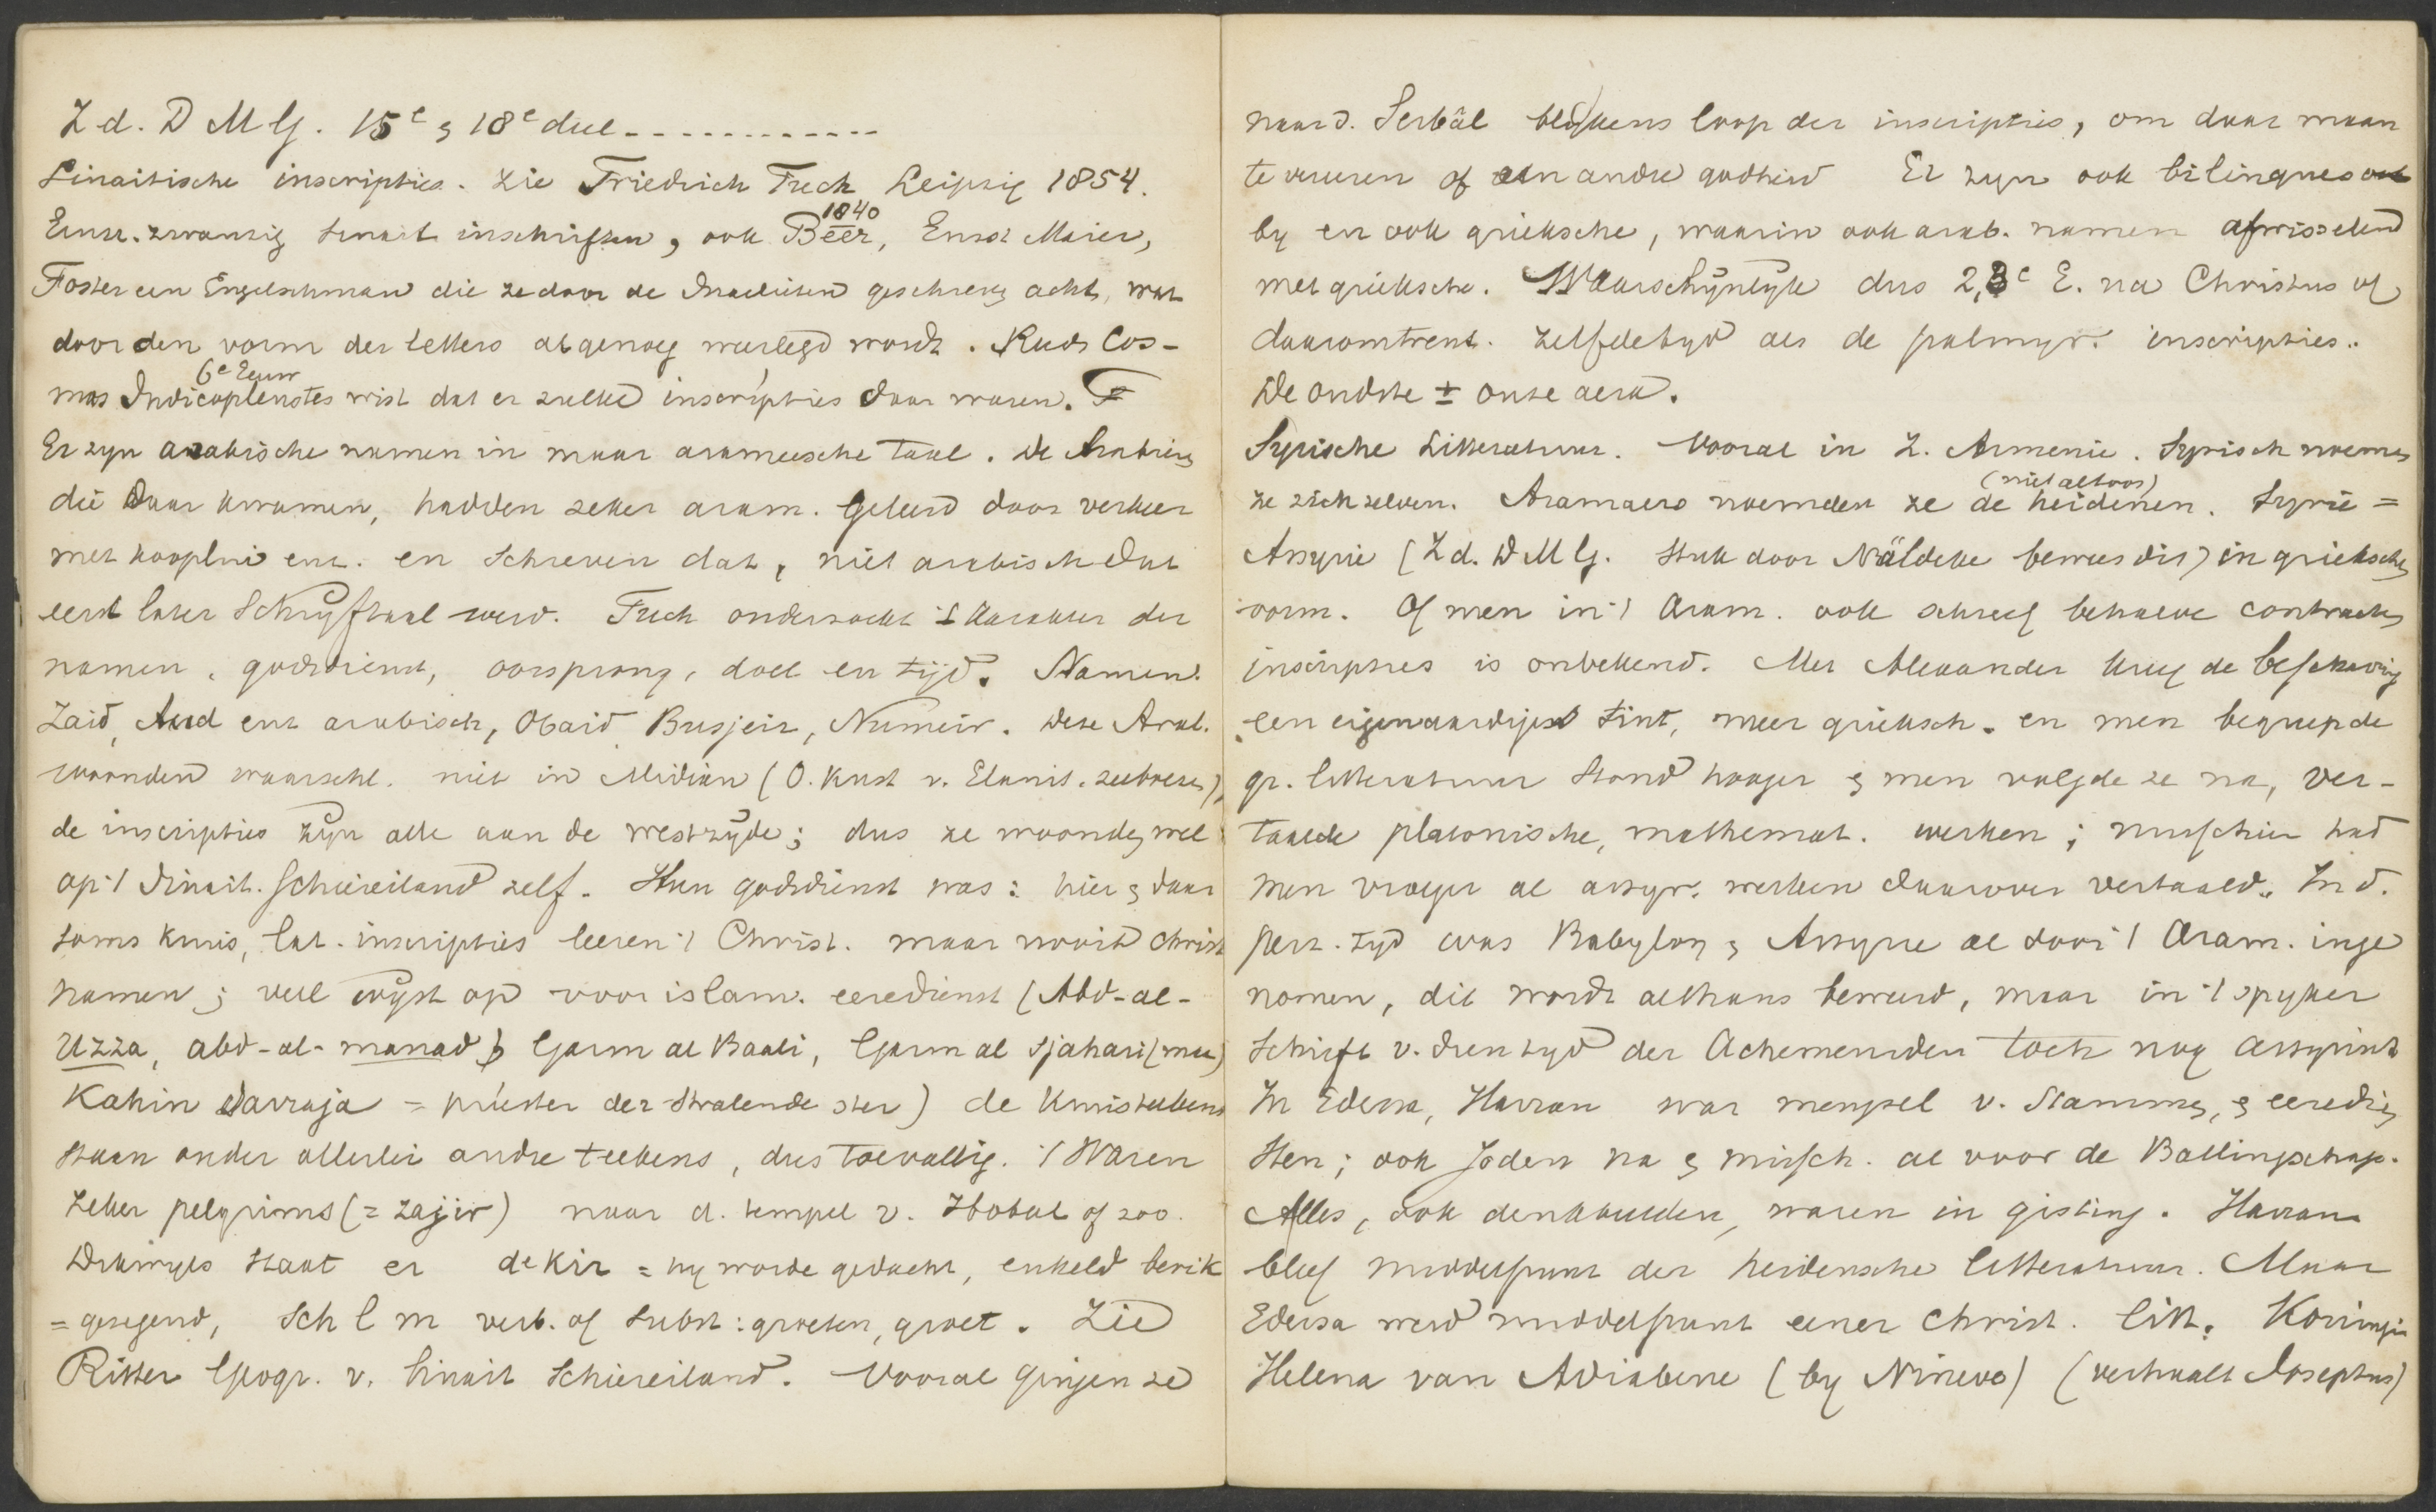 Z d. D M G. 15e & 18e deel - - - - - - - - - - - -
Sinaitische inscripties. Zie Friedrich Tuch Leipzig 1854.
Einu. zwanzig Sinait inschriften, ook Beer, 1840 Ernst Meier,
Foster een Engelschman die ze door de Israelieten geschreven acht, wat
door den vorm der letters al genoeg weerlegd wordt. Reeds Cos-
6e Eeuw
mas Indicopleustes wist dat er zulke inscripties daar waren.
Er zyn arabische namen in maar arameesche taal. De Arabieren
die daar kwamen, hadden zeker aram. geleerd door verkeer
met kooplui enz. en schreven dat, niet arabisch dat
eerst later schryftaal werd. Tuch onderzoekt 't karakter der
namen, godsdienst, oorsprong, doel en tijd. Namen.
Zaid, Aud enz arabisch, Obaid Busjeir, Numeir. Deze Arab.
woonden waarschl. niet in Midian (O. kust v. Elanit. zeeboezem),
de inscripties zyn alle aan de westzyde; dus ze woonden wel
op 't Sinait. schiereiland zelf. Hun godsdienst was: hier & daar
soms kruis, lat. inscripties leeren 't Christ. maar nooit christ
namen; veel wyst op voor islam. eeredienst (Abd-al-
Uzza, abd-al-manad) Garm al Baali, Garm al Sjahari (mu)
Kahin Darraja = priester der stralende ster) de kruisteekens
staan onder allerlei andre teekens, dus toevallig. 't Waren
zeker pelgrims (= zajir) naar d. tempel v. Hobal of zoo.
Dikwyls staat er dekir = hy worde gedacht, enkeld berik
= gezegend, Sch l m verb. of subst: groeten, groet. Zie
Ritter Geogr. v. Sinait Schiereiland. Vooral gingen ze
naar d. Serbâl blykens loop der inscripties, om daar maan
te vereeren of een andre godheid Er zyn ook bilingues
by en ook grieksche, waarin ook arab. namen afwisselend
met grieksche. Waarschynlyk dus 2, 3e E. na Christus of
daaromtrent. Zelfde tyd als de palmyr. inscripties.
De oudste ± onze aera.
Syrische Litteratuur. Vooral in Z. Armenie. Syrisch noemen
(niet altoos)
ze zichzelven. Aramaers noemden ze de heidenen. Syrie =
Assyrie (Z d. D M G. stuk door Näldeke bewees dit) in grieksche
vorm. Of men in 't Aram. ook schreef behalve contracten
inscripties is onbekend. Met Alexander kreeg de beschaving
een eigenaardige tint, meer grieksch. en men begreep de
gr. litteratuur stond hooger & men volgde ze na, ver-
taalde platonische, mathemat. werken; misschien had
men vroeger al assyr. werken daarover vertaald. In d.
perz. tyd was Babylon & Assyrie al door 't Aram. inge
nomen, dit wordt althans beweerd, maar in 't spyker
schrift v. dien tyd der Achemeniden toch nog assyrisch
In Edessa, Harran was mengsel v. stammen, & eeredien
sten; ook Joden na & missch. al voor de Ballingschap.
Alles, ook denkbeelden, waren in gisting. Harran
bleef middelpunt der heidensche litteratuur. Maar
Edessa werd middelpunt eener christ. litt. Koningin
Helena van Adiabene (by Nineve) (verhaalt Josephus)